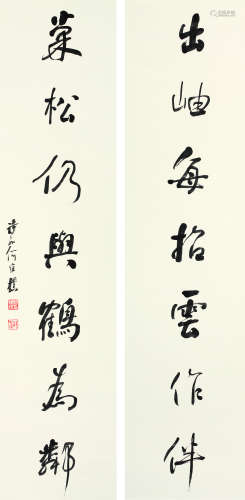 出岫每招雲作伴
巢松仍與鶴為鄰